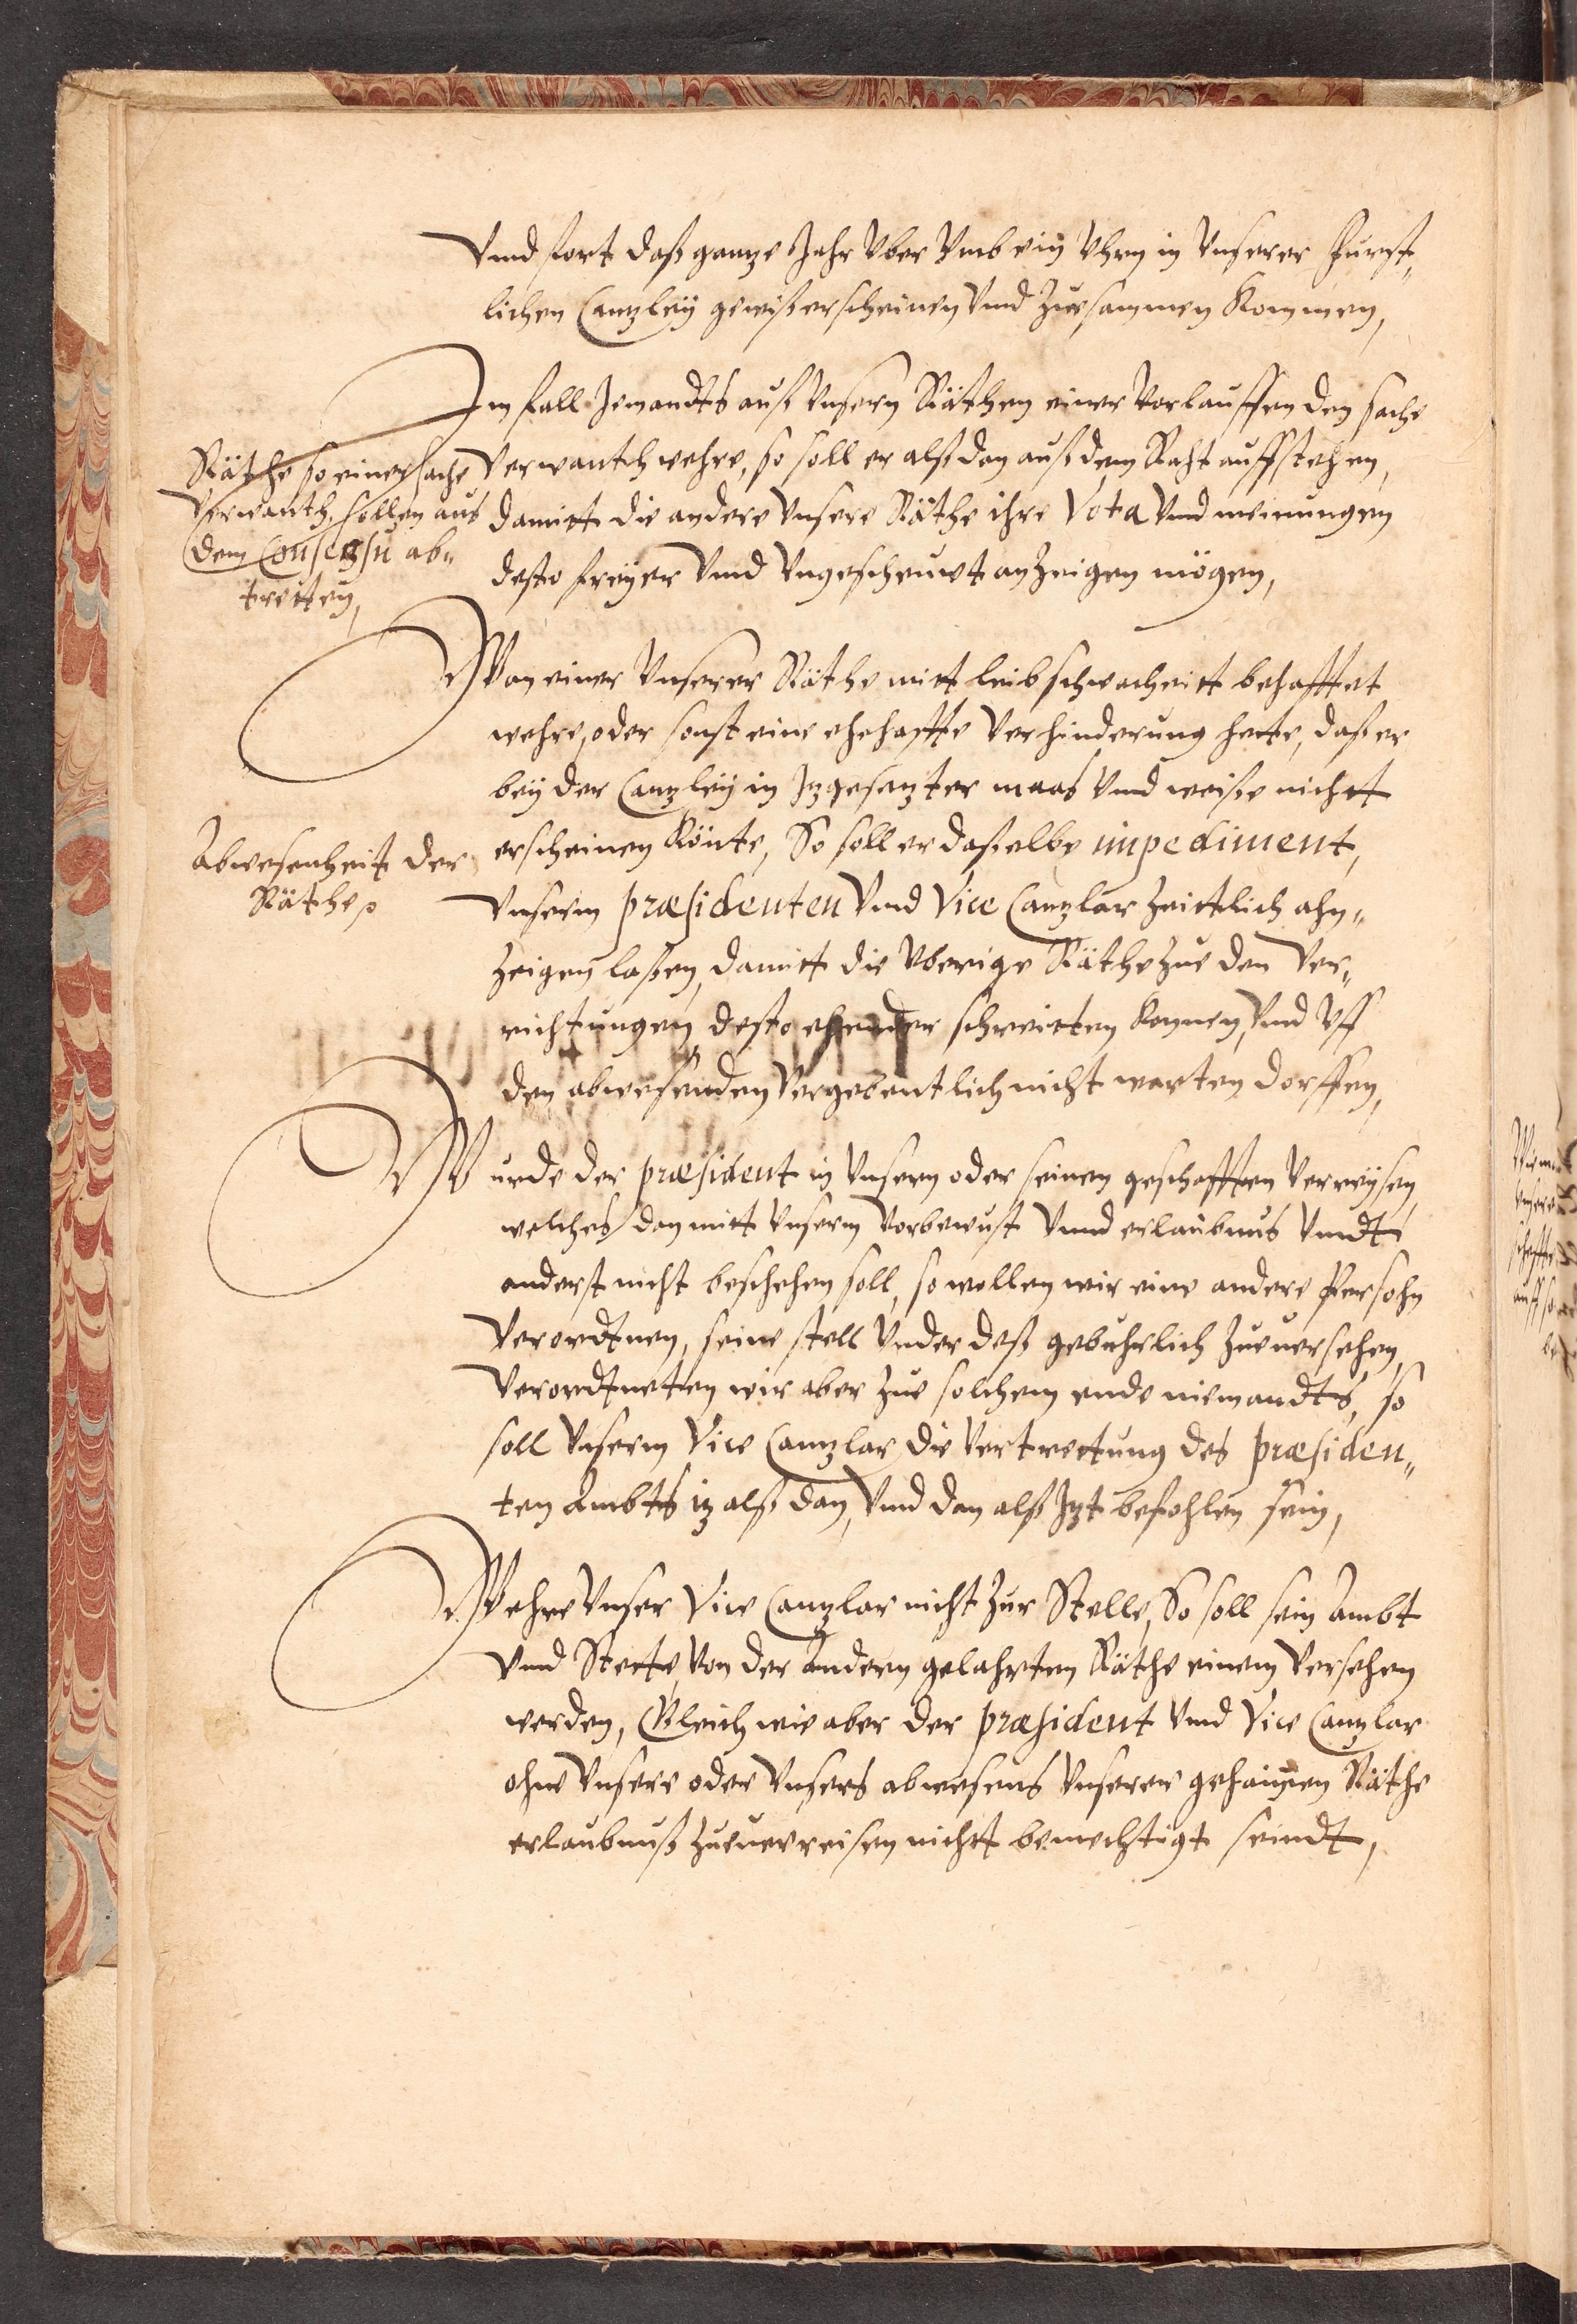 Vnd fort daß gantze Jahr vber vmb ein Vhrn in vnserer Fürst„
lichen Cantzleÿ gewiß erscheinen vnd zuesammen kommen,
Im fall Jemandts auß vnsern Räthen einer vorlauffenden sache
verwanth wehre, so soll er alß dan auß dem Raht auffstehen,
damitt die andere vnsere Räthe ihre Vota vnd meinungen
desto freÿer vnd vngescheuwt anzeigen mögen,
Räthe so einer sache
verwanth, sollen aus
dem Consessu ab„
tretten,
Wan einer vnserer Räthe mitt leibschwacheitt behafftet
wehre, oder sonst eine ehehaffte verhinderung hette, daß er
beÿ der Cantzleÿ in Itzgesetzter maas vnd weise nichtt
erscheinen könte, So soll er daßelbe impediment,
vnserm præsidenten vnd Vice Cantzlar zeittlich ahn„
zeigen laßen, damitt die vberige Räthe zue den ver„
richtungen desto ehender schreitten konnen, vnd vff
den abwesenden vergebentlich nicht warten dorffen,
Abwesenheit der
Räthe
Wurde der præsident in vnsern oder seinen geschafften verreÿsen,
welches dan mitt vnserm vorbewust vnnd erlaubnus vndt
anderst nicht beschehen soll, so wollen wir eine andere Persohn
verordtnen, seine stell vnder deß gebuhrlich zuuersehen,
verordtneten wir aber zue solchem ende niemandts, so
soll vnserm Vice Cantzlar die vertrettung des præsiden„
ten Ambts itz alß dan, vnd dan alß Jtzt befohlen sein,
Wehre vnser Vice Cantzlar nicht zur Stelle, So soll sein Ambt
vnd Stette von der andern gelahrten Räthe einem versehen
werden, Gleich wie aber der præsident vnd Vice Cantzlar
ohne vnsere oder vnsers abwesens vnserer gehaimen Räthe
erlaubnuß zuuerreisen nichtt bemechtigt seindt,